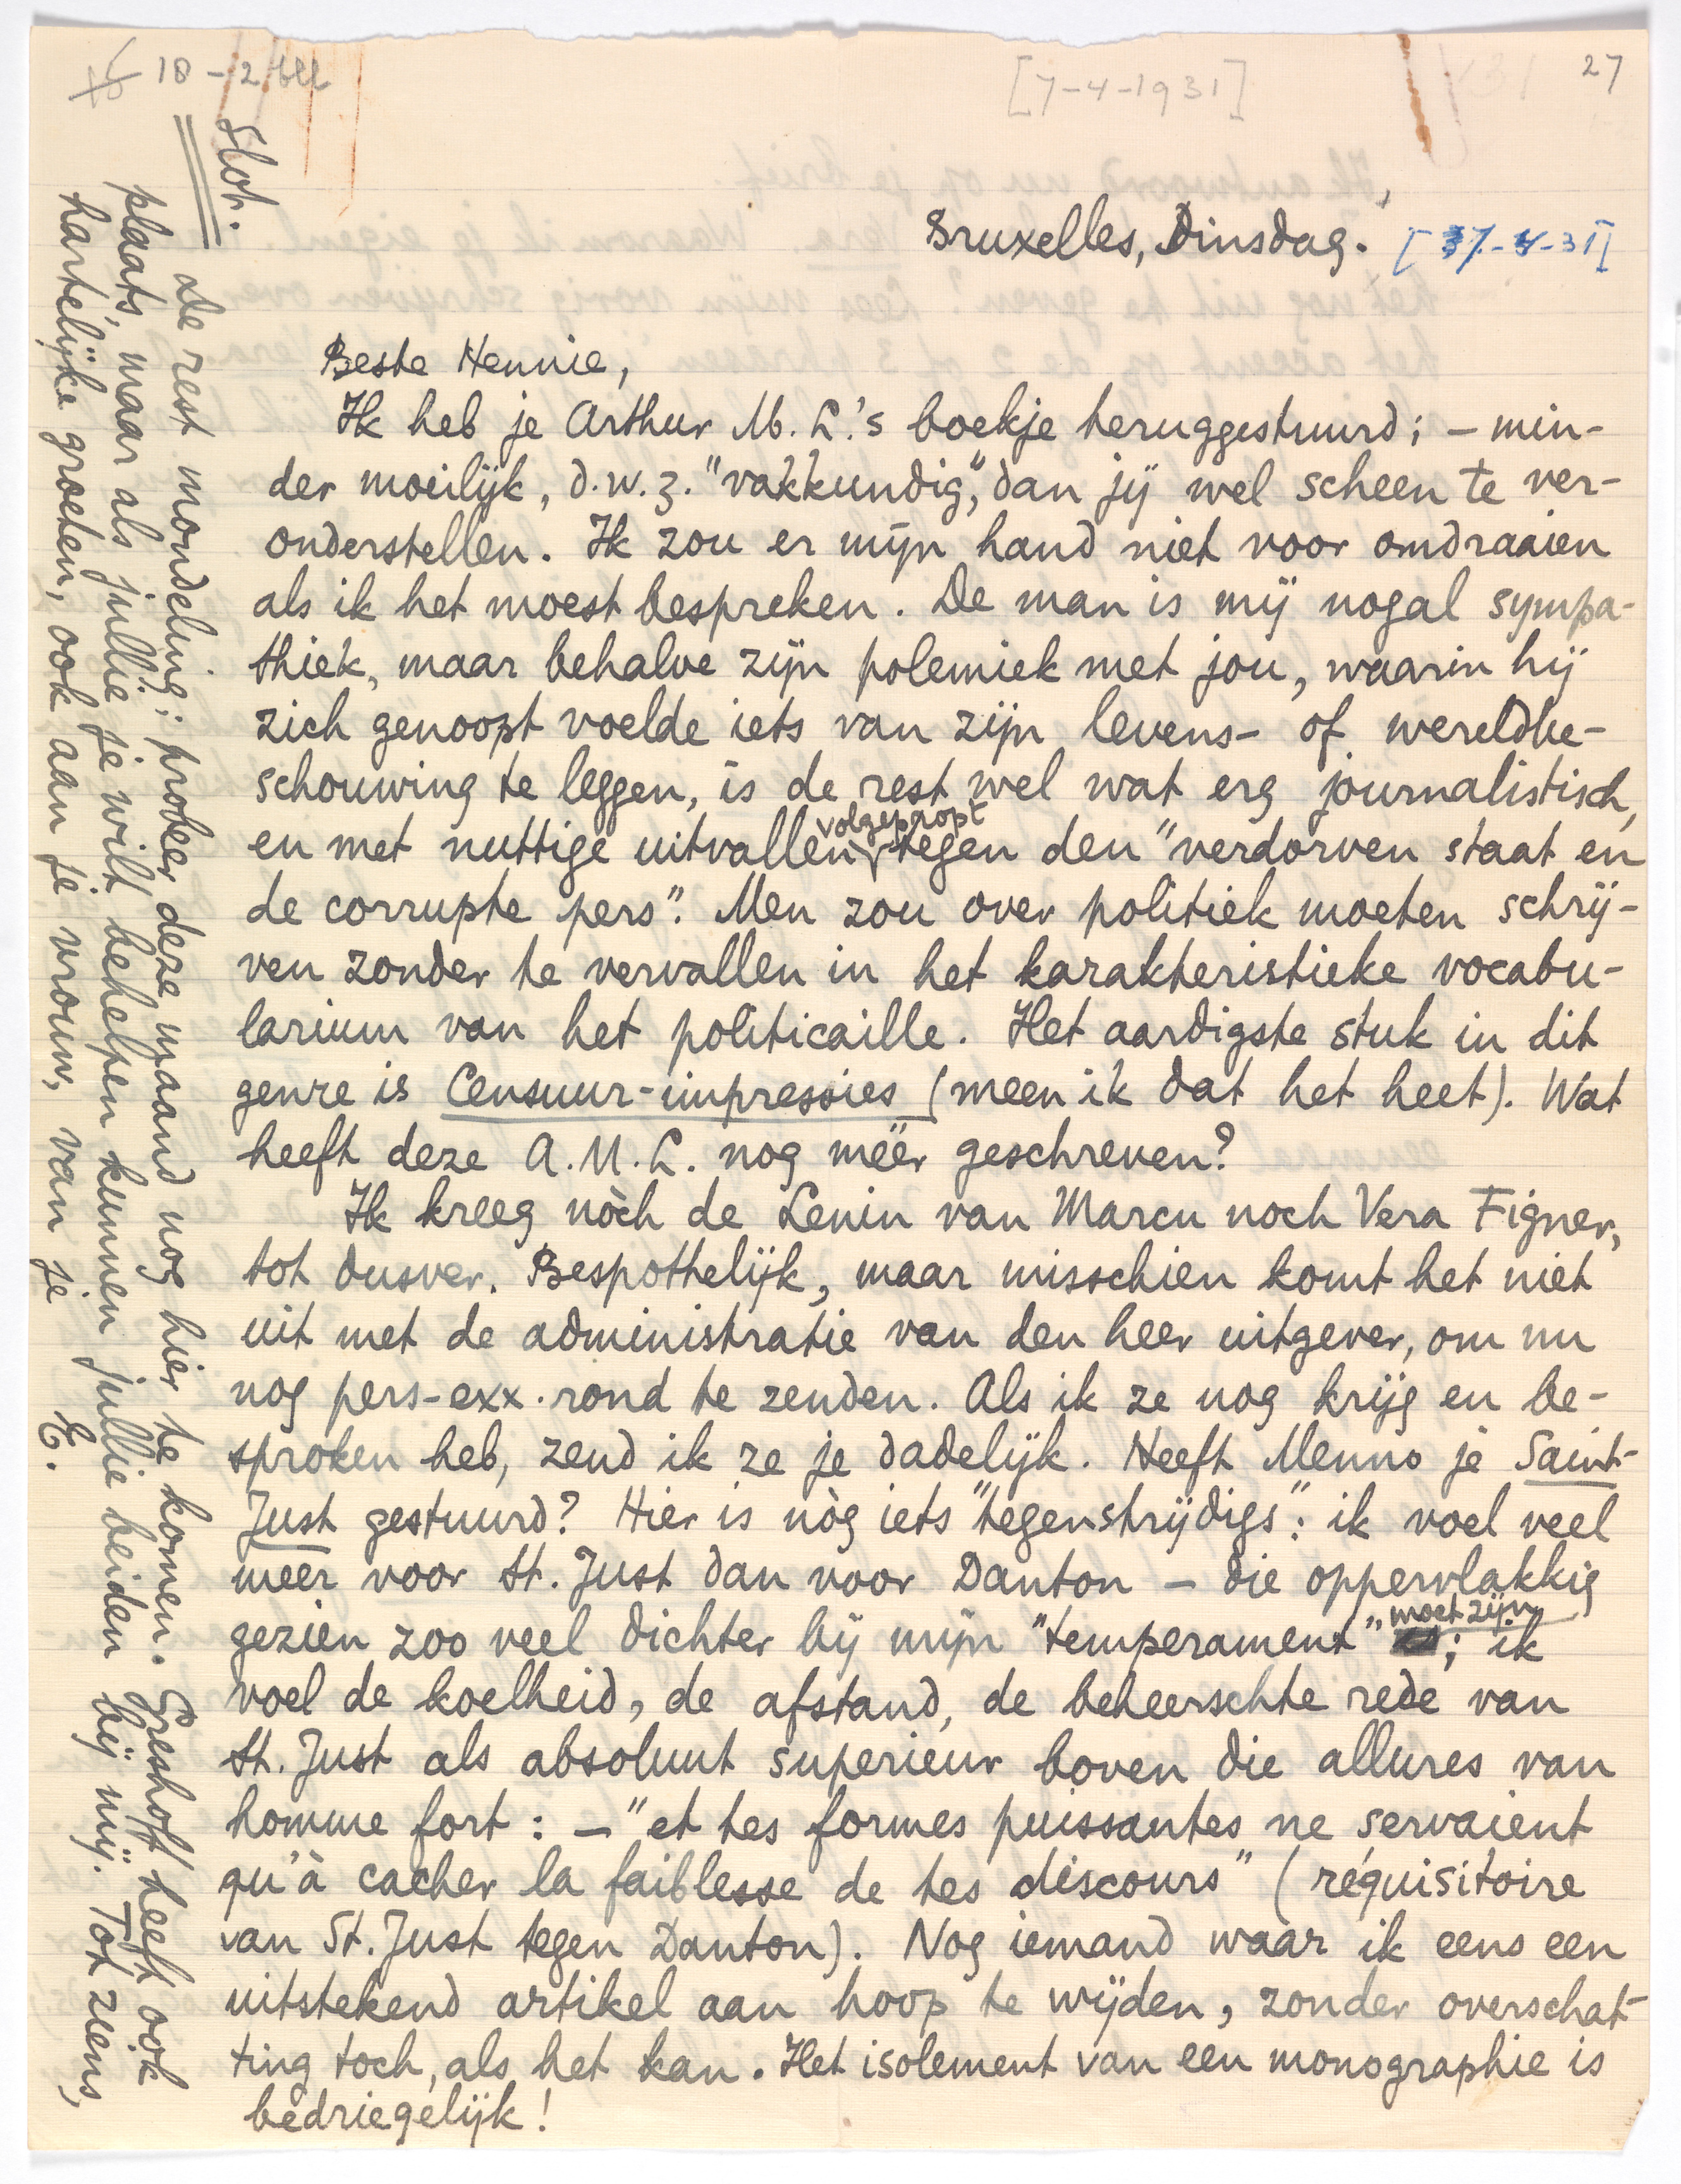 18 - 2 bll
[7-4-1931]
27
Bruxelles, Dinsdag.
[37-4-31]
Beste Hennie,
Ik heb je Arthur M. L.'s boekje teruggestuurd; – min-
der moeilijk, d.w.z. "vakkundig", dan jij wel scheen te ver-
onderstellen. Ik zou er mijn hand niet voor omdraaien
als ik het moest bespreken. De man is mij nogal sympa-
thiek, maar behalve zijn polemiek met jou, waarin hij
zich genoopt voelde iets van zijn levens- of wereldbe-
schouwing te leggen, is de rest wel wat erg journalistisch,
en met nuttige uitvallen volgepropt tegen den "verdorven staat en
de corrupte pers". Men zou over politiek moeten schrij-
ven zonder te vervallen in het karakteristieke vocabu-
larium van het politicaille. Het aardigste stuk in dit
genre is Censuur-impressies (meen ik dat het heet). Wat
heeft deze A.M.L. nog méér geschreven?
Ik kreeg nòch de Lenin van Marcu noch Vera Figner,
tot dusver. Bespottelijk, maar misschien komt het niet
uit met de administratie van den heer uitgever, om nu
nog pers-exx. rond te zenden. Als ik ze nog krijg en be-
sproken heb, zend ik ze je dadelijk. Heeft Menno je Saint-
Just gestuurd? Hier is nòg iets "tegenstrijdigs": ik voel veel
meer voor St. Just dan voor Danton – die oppervlakkig
gezien zoo veel dichter bij mijn "temperament" moet zijn; ik
voel de koelheid, de afstand, de beheerschte rede van
St. Just als absoluut superieur boven die allures van
homme fort: – "et tes formes puissantes ne servaient
qu'à cacher la faiblesse de tes discours" (réquisitoire
van St. Just tegen Danton). Nog iemand waar ik eens een
uitstekend artikel aan hoop te wijden, zonder overschat-
ting toch, als het kan. Het isolement van een monographie is
bedriegelijk!
Slot.
De rest mondeling; probeer deze maand nog hier te komen. Greshoff heeft ook
plaats, maar als jullie je wilt behelpen kunnen jullie beiden bij mij. Tot ziens,
hartelijke groeten, ook aan je vrouw, van je
E.